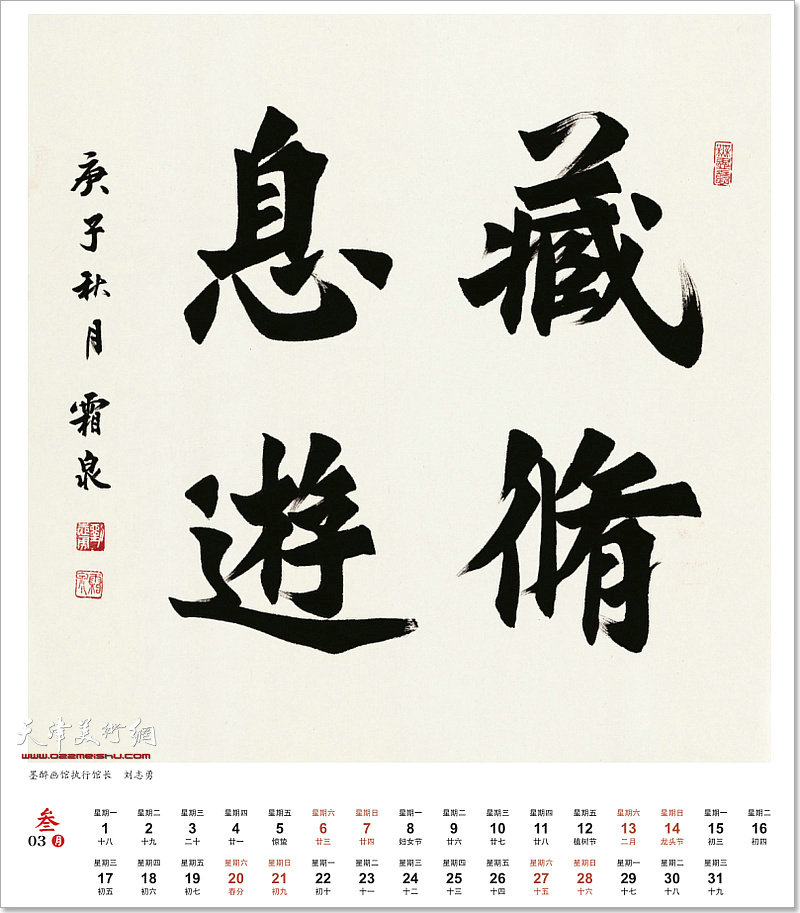 藏脩
息遊
庚子秋月 霜泉
天津美術網
www.022meishu.com
墨醉画馆执行馆长 刘志勇
叁
03 月
星期一 星期二 星期三 星期四 星期五 星期六 星期日 星期一 星期二 星期三 星期四 星期五 星期六 星期日 星期一 星期二
1 2 3 4 5 6 7 8 9 10 11 12 13 14 15 16
十八 十九 二十 廿一 惊蛰 廿三 廿四 妇女节 廿六 廿七 廿八 植树节 二月 龙头节 初三 初四
星期三 星期四 星期五 星期六 星期日 星期一 星期二 星期三 星期四 星期五 星期六 星期日 星期一 星期二 星期三
17 18 19 20 21 22 23 24 25 26 27 28 29 30 31
初五 初六 初七 春分 初九 初十 十一 十二 十三 十四 十五 十六 十七 十八 十九